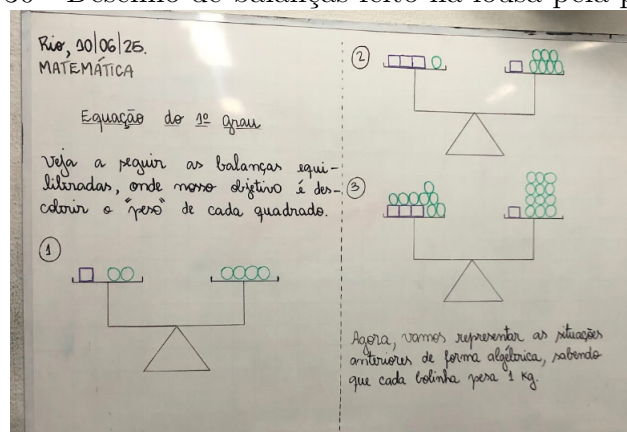 Desenho de balanças feito na lousa pela p
Rio, 10/06/25.
MATEMÁTICA
Equação do 1º grau
Veja a seguir as balanças equi-
libradas, onde nosso objetivo é des-
cobrir o "peso" de cada quadrado.
1
2
3
Agora, vamos representar as situações
anteriores de forma algébrica, sabendo
que cada bolinha pesa 1 kg.